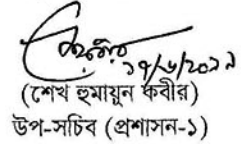 ১৭/৬/২০১৯
(শেখ হুমায়ুন কবীর)
উপ-সচিব (প্রশাসন-১)